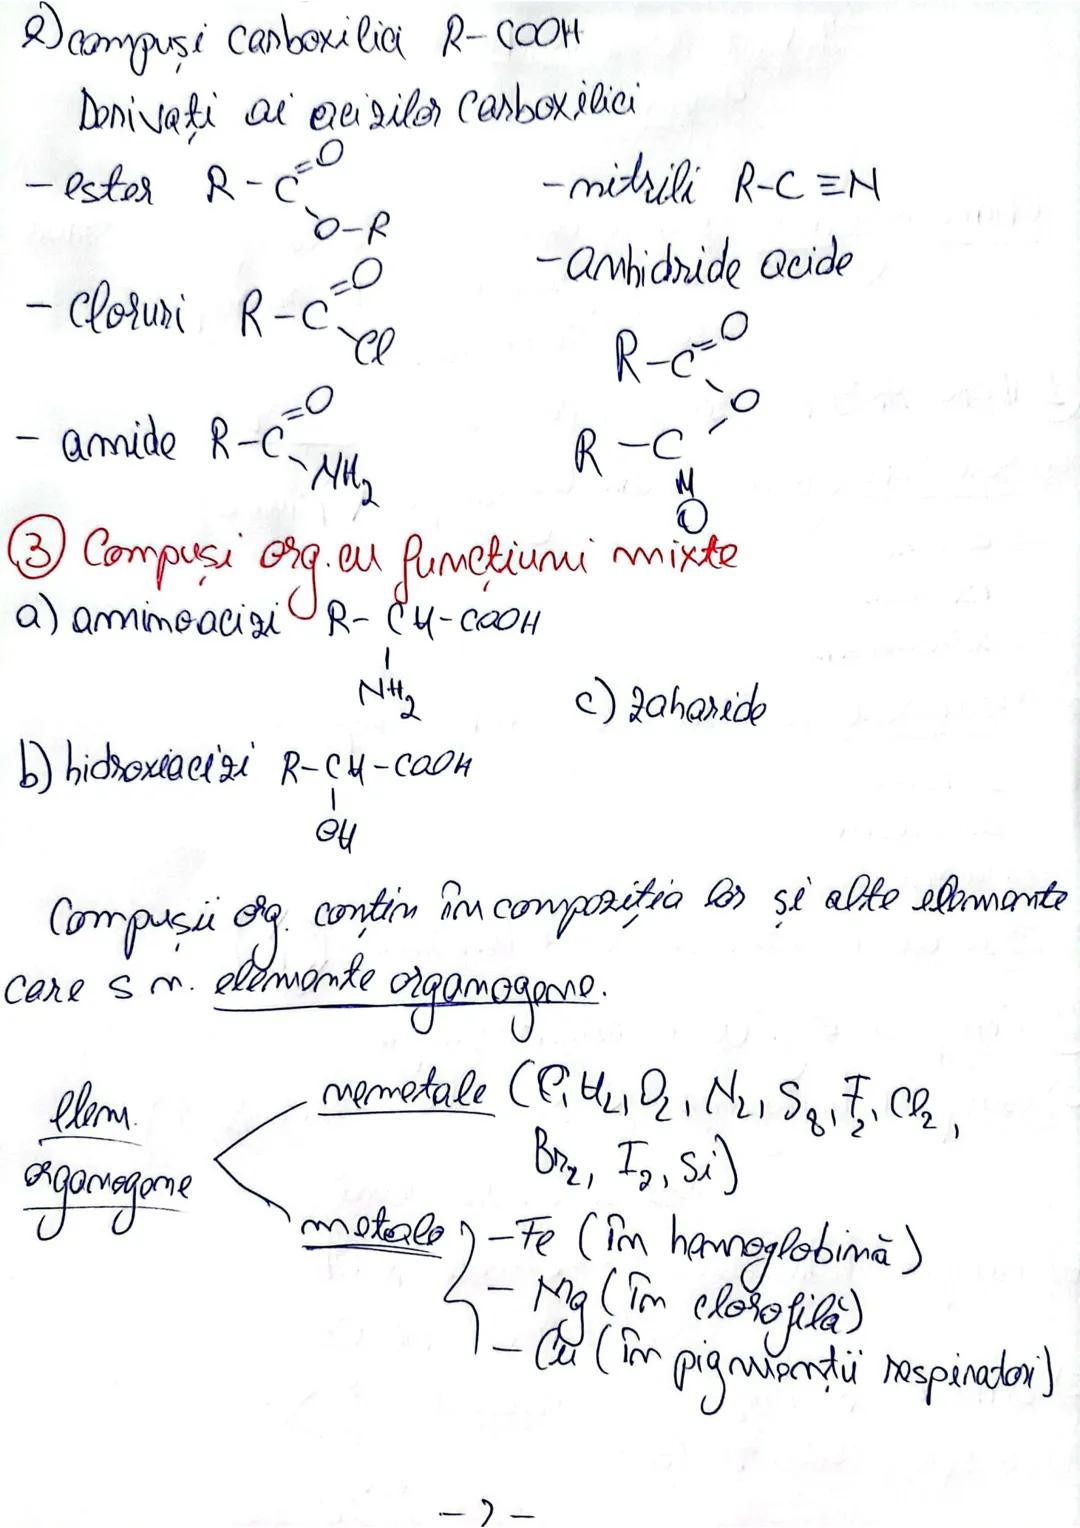 e) compuși carboxilici R-COOH
Derivați ai acizilor carboxilici
- ester R-C=O
O-R
- cloruri R-C=O
Cl
- amide R-C=O
NH₂
- nitrili R-C≡N
- anhidride acide
R-C=O
O
R-C
O
③ Compuși org. cu funcțiuni mixte
a) aminoacizi R-CH-COOH
NH₂
b) hidroxiacizi R-CH-COOH
OH
c) zaharide
Compușii org. conțin în compoziția lor și alte elemente
care s n. elemente organogene.
elem.
organogene
nemetale (C, H₂, O₂, N₂, S₈, F₂, Cl₂,
Br₂, I₂, Si)
metale - Fe (în hemoglobină)
- Mg (în clorofilă)
- Cu (în pigmenții respiratori)
- 2 -